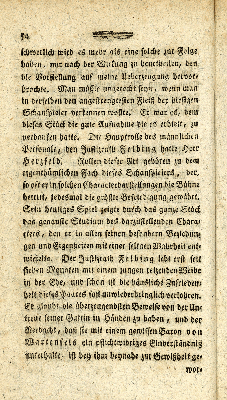 54
schwerlich wird es mehr als eine solche zur Folge
haben, mir nach der Wirkung zu beurtheilen, den
die Vorstellung auf meine Ueberzeugung hervor-
brachte. Man müßte ungerecht seyn, wenn man
in derselben den angestrengtesten Fleiß der hiesigen
Schauspieler verkennen wollte. Er war es, dem
dieses Stück die gute Aufnahme die es erhielt, zu
verdanken hatte. Die Hauptrolle des männlichen
Personale, den Justizrath Felbing hatte Herr
Herzfeld. Rollen dieser Art gehören zu dem
eigenthümlichen Fach dieses Schauspielers, der,
so oft er in solchen Characterdarstellungen die Bühne
betritt, jedesmal die größte Befriedigung gewährt.
Sein heutiges Spiel zeigte durch das ganze Stück
das genauste Studium des darzustellenden Charac-
ters, den er in allen seinen besondern Beziehun-
gen und Eigenheiten mit einer seltnen Wahrheit ent-
wickelte. Der Justizrath Felbing lebt erst seit
sieben Monaten mit einem jungen reizenden Weibe
in der Ehe, und schon ist die häusliche Zufrieden-
heit dieses Paares fast unwiederbringlich verlohren.
Er glaubt die überzeugendsten Beweise von der Un-
treue seiner Gattin in Händen zu haben, und der
Verdacht, daß sie mit einem gewissen Baron von
Wartenfels ein pflichtwidriges Einverständniß
unterhalte ist bey ihm beynahe zur Gewißheit ge-
wor-